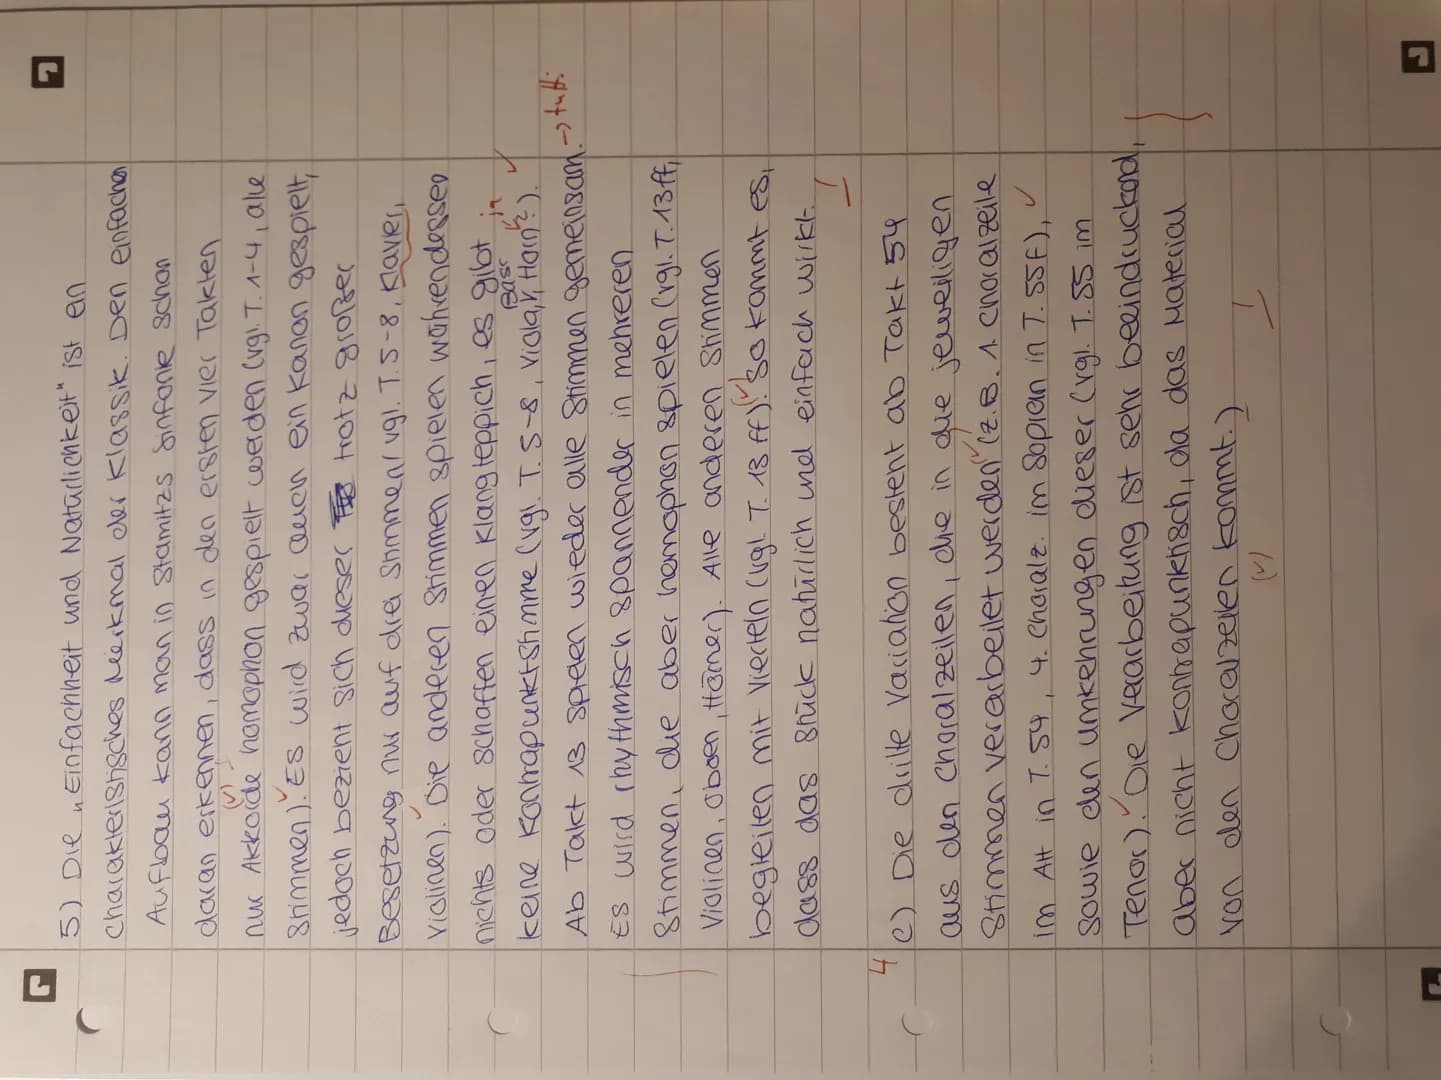 5) Die „Einfachheit und Natürlichkeit" ist en
charakteristisches Merkmal der Klassik. Den einfachen
Aufbau kann man in Stamitzs Sinfonie schon
daran erkennen, dass in den ersten vier Takten
(✓)
nur Akkorde homophon gespielt werden (vgl. T. 1-4, alle
Stimmen). ✓ Es wird zwar auch ein Kanon gespielt,
jedoch bezieht sich dieser trotz großer
Besetzung nur auf drei Stimmen (vgl. T. 5-8, Klavier,
Violinen). ✓ Die anderen Stimmen spielen währendessen
nichts oder schaffen einen Klangteppich, es gibt
Bass ja ✓
keine Kontrapunktstimme (vgl. T. 5-8, Viola, Horn?).
Ab Takt 13 spielen wieder alle Stimmen gemeinsam. → tutti
Es wird rhythmisch spannender in mehreren
Stimmen, die aber homophon spielen (vgl. T. 13ff,
Violinen, Oboen, Hörner). Alle anderen Stimmen
begleiten mit Vierteln (vgl. T. 13 ff). (✓) So kommt es,
dass das Stück natürlich und einfach wirkt.
4 c) Die dritte Variation besteht ab Takt 54
aus den Choralzeilen, die in die jeweiligen
Stimmen verarbeitet werden (✓) (z.B. 1. Choralzeile
im Alt in T. 54, 4. Choralz. im Sopran in T. 55f), ✓
sowie den Umkehrungen dieser (vgl. T. 55 im
Tenor). ✓ Die Verarbeitung ist sehr beeindruckend,
aber nicht kontrapunktisch, da das Material
von den Choralzeilen kommt.)
(✓)